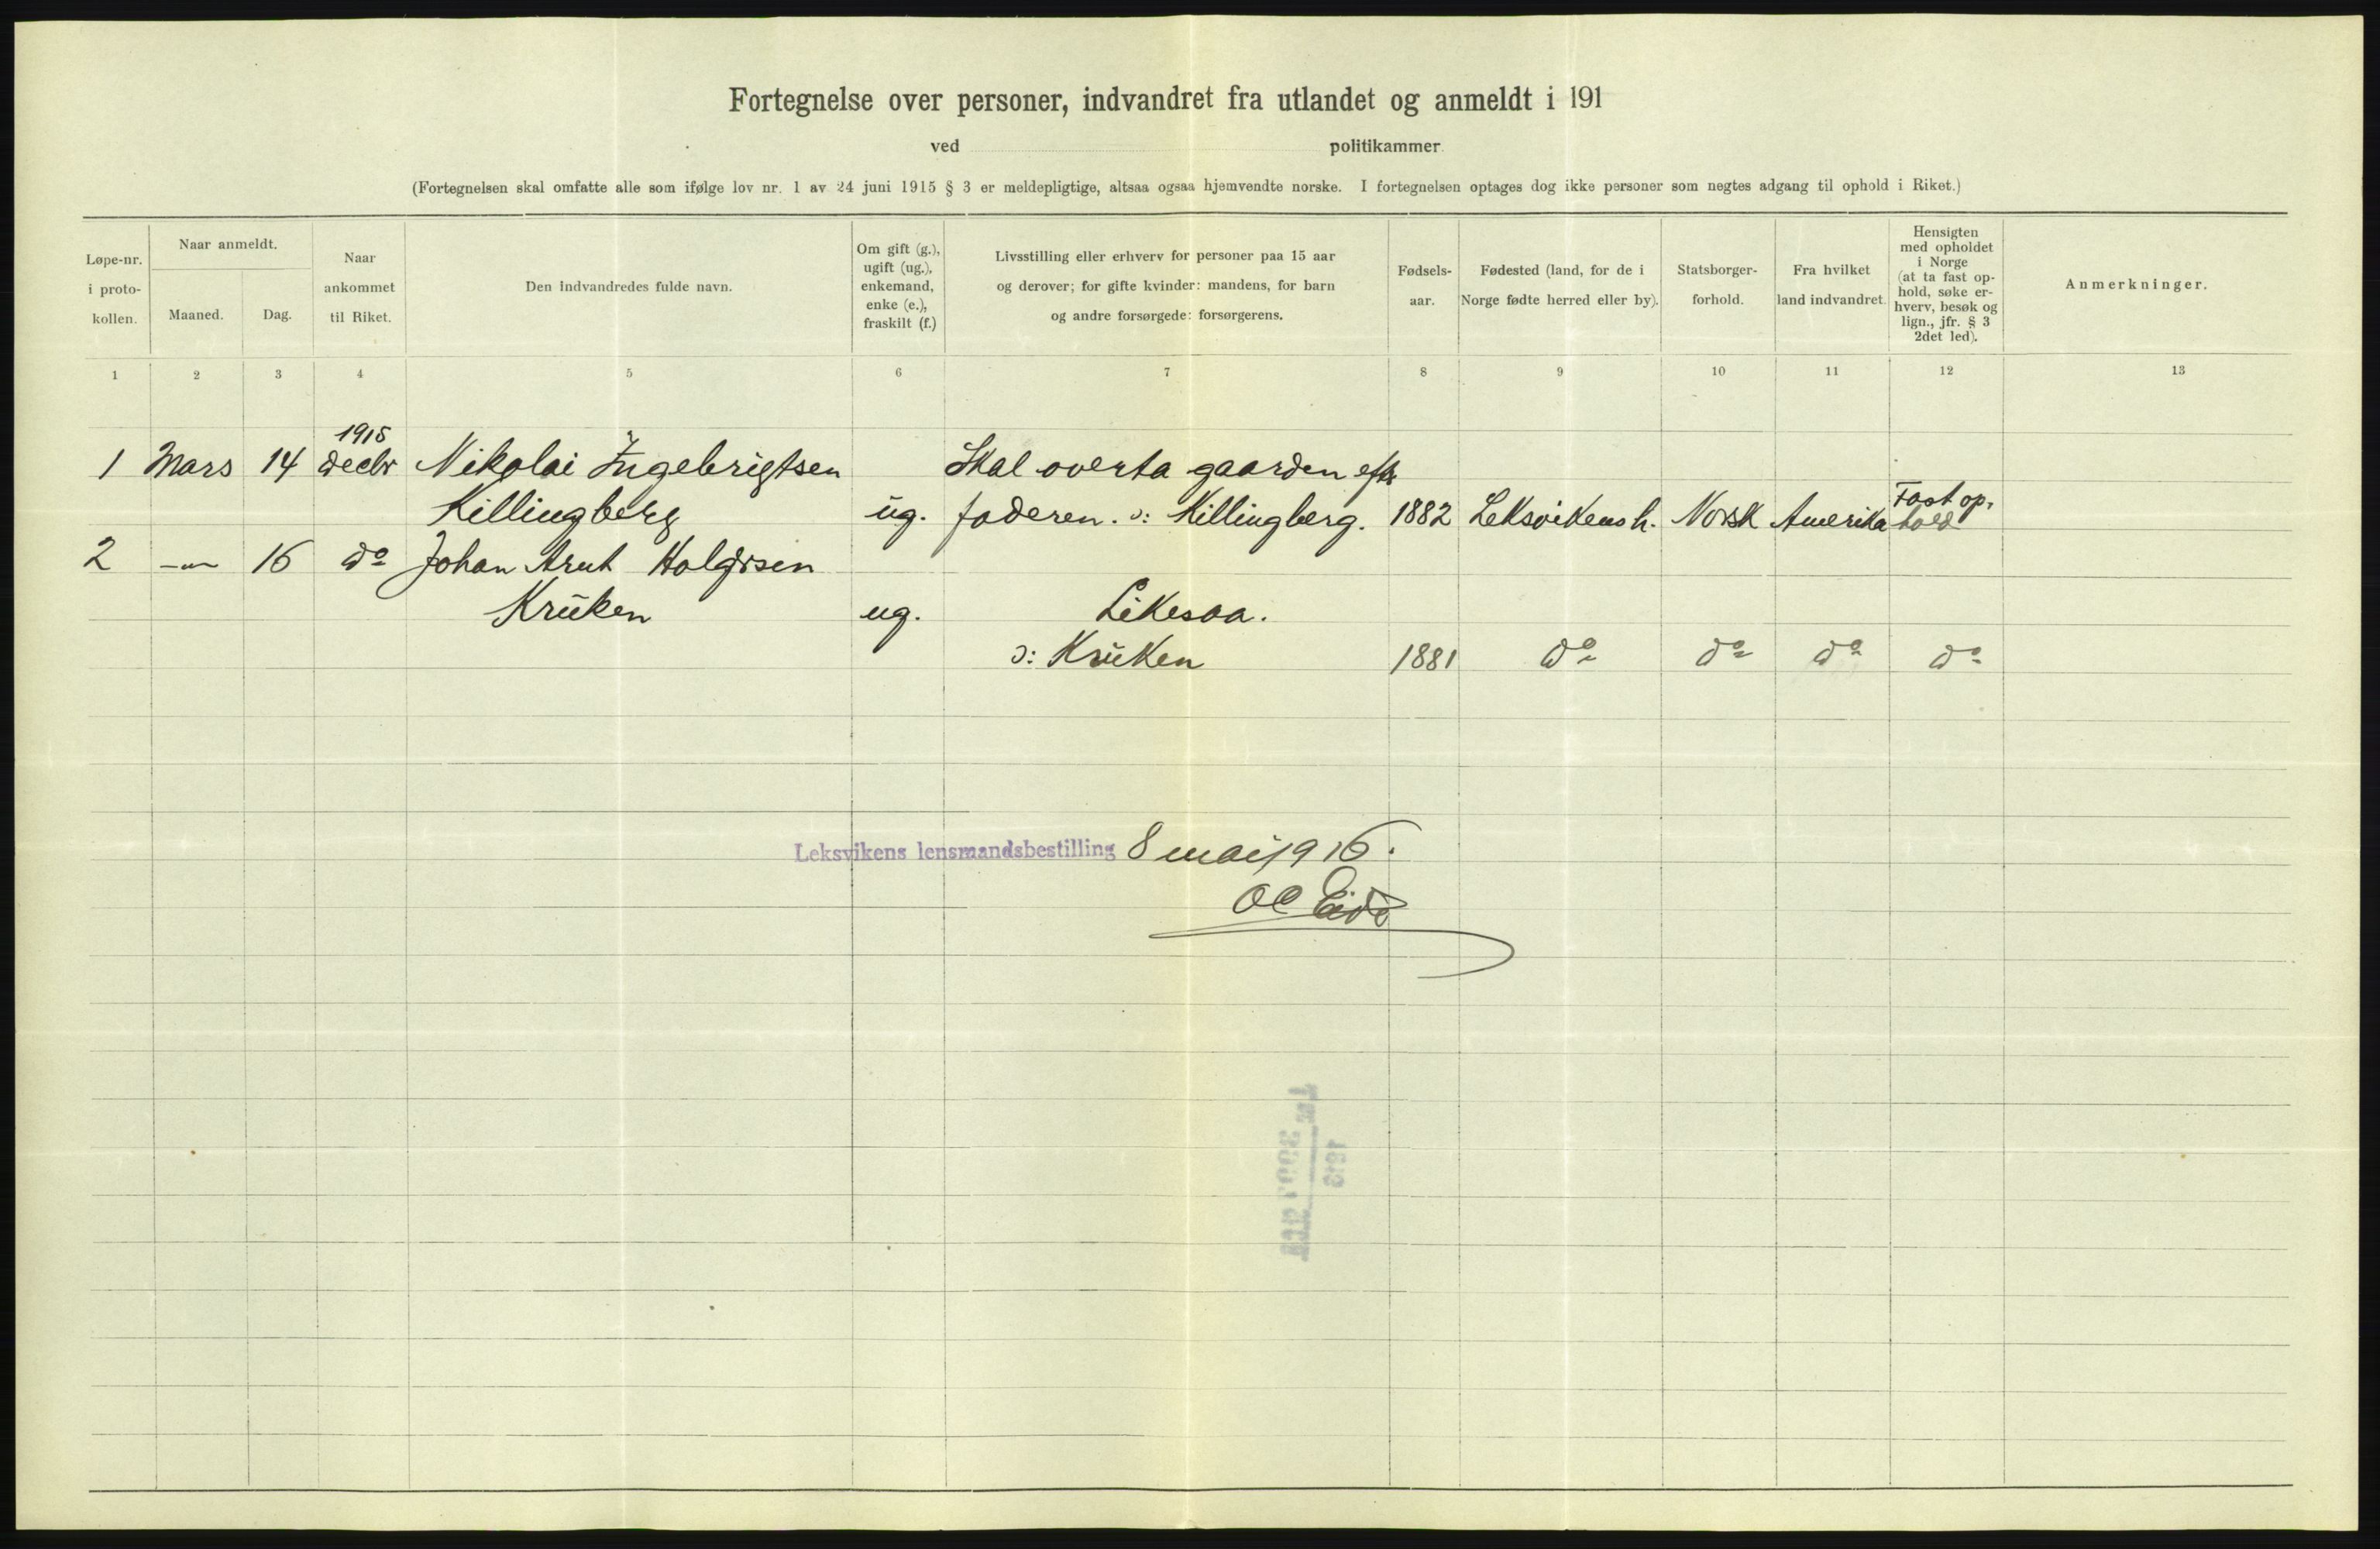 Fortegnelse over personer, indvandret fra utlandet og anmeldt i 191
ved politikammer
(Fortegnelsen skal omfatte alle som ifølge lov nr. 1 av 24 juni 1915 § 3 er meldepligtige, altsaa ogsaa hjemvendte norske. I fortegnelsen optages dog ikke personer som negtes adgang til ophold i Riket.)
Løpe-nr.
i proto-
kollen.
Naar anmeldt.
Maaned.
Dag.
Naar
ankommet
til Riket.
Den indvandredes fulde navn.
Om gift (g.),
ugift (ug.),
enkemand,
enke (e.),
fraskilt (f.)
Livsstilling eller erhverv for personer paa 15 aar
og derover; for gifte kvinder: mandens, for barn
og andre forsørgede: forsørgerens.
Fødsels-
aar.
Fødested (land, for de i
Norge fødte herred eller by).
Statsborger-
forhold.
Fra hvilket
land indvandret.
Hensigten
med opholdet
i Norge
(at ta fast op-
hold, søke er-
hverv, besøk og
lign., jfr. § 3
2det led).
Anmerkninger.
1 2 3 4 5 6 7 8 9 10 11 12 13
1915
1 Mars 14 decbr Nikolai Ingebrigtsen Skal overta gaarden efter
Killingberg ug. faderen. ɔ: Killingberg. 1882 Leksvikens h. Norsk Amerika Fast op-
hold
2 -"- 16 do Johan Arnt
Krüken ug. Likesaa.
ɔ: Krüken 1881 do do do do
Leksvikens lensmandsbestilling 8 mai 1916.
OC Eide